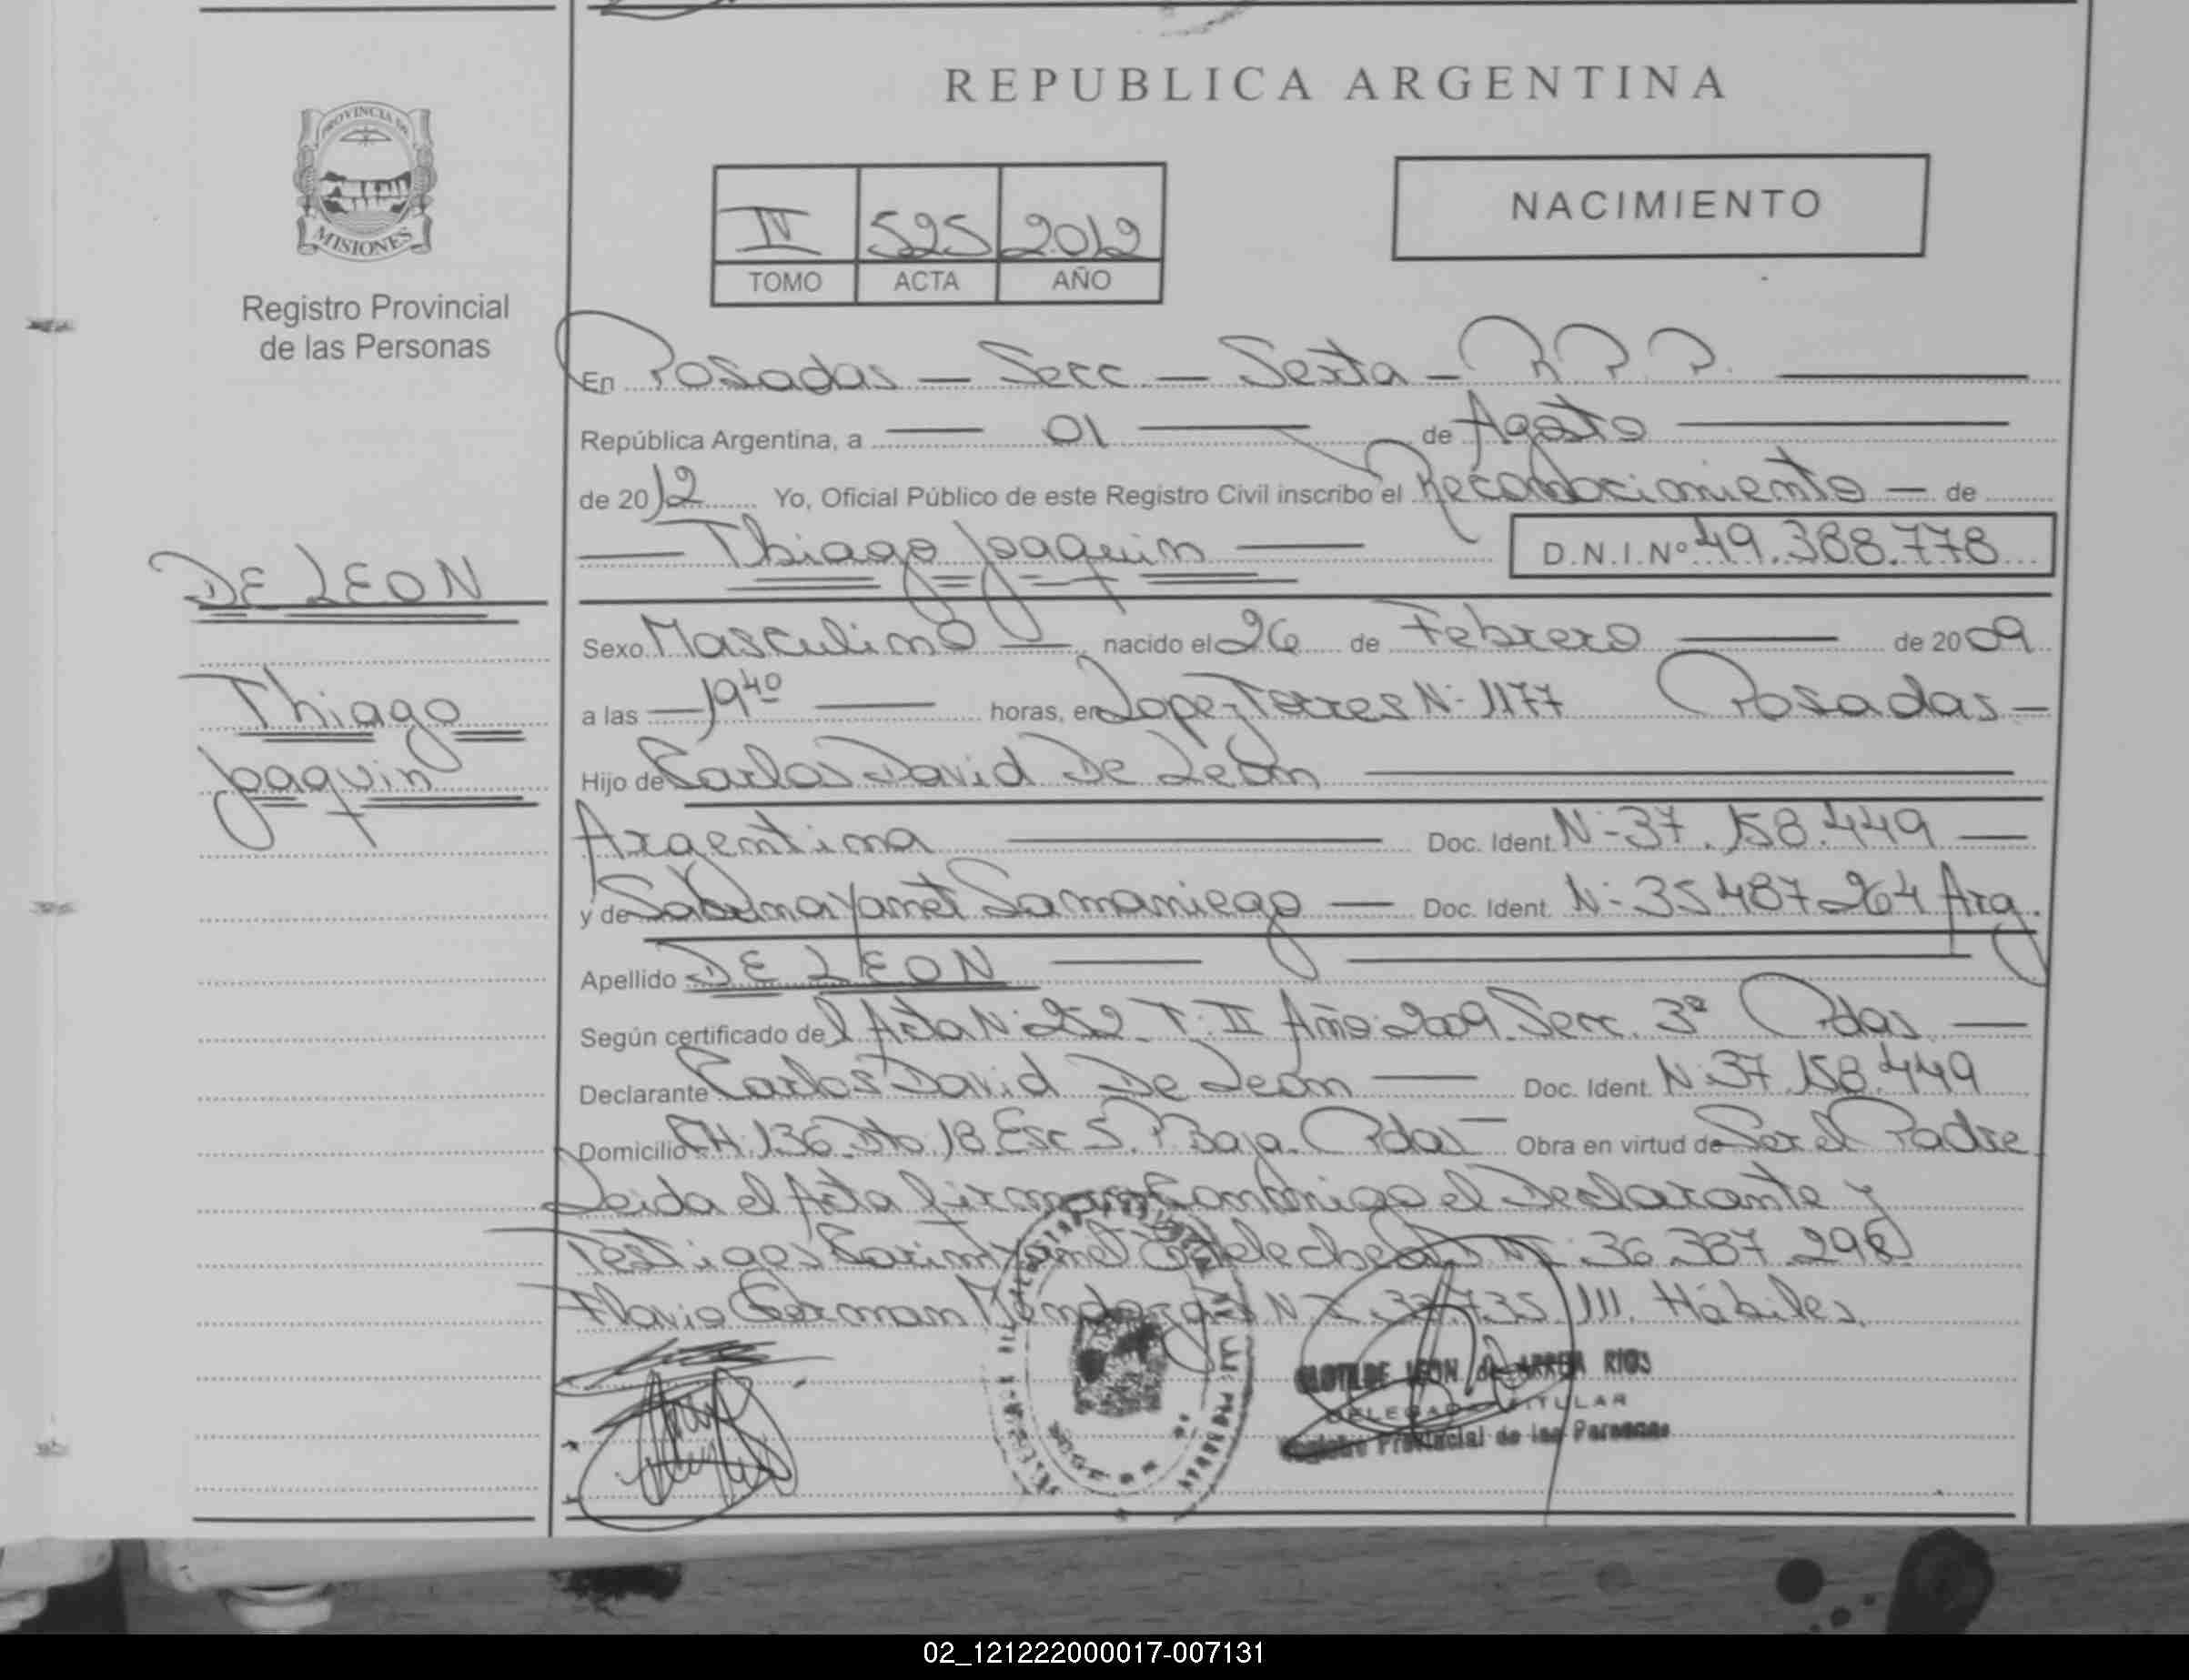 REPUBLICA ARGENTINA
PROVINCIA DE
MISIONES
Registro Provincial
de las Personas
IV 525 2012
TOMO ACTA AÑO
NACIMIENTO
En Posadas — Secc — Sexta — R P P.
República Argentina, a — 01 — de Agosto
de 2012 Yo, Oficial Público de este Registro Civil inscribo el Reconocimiento — de
Thiago Joaquin — D.N.I.Nº 49.388.778
DE LEON
Thiago
Joaquin
Sexo Masculino — nacido el 26 de Febrero — de 2009
a las — 19 40 — horas, en Lopez Torres N- 1177 Posadas —
Hijo de Carlos David De León
Argentina — Doc. Ident. N- 37.158.449 —
y de Sabrina Yanet Samaniego — Doc. Ident. N- 35487264 Arg.
Apellido DE LEON
Según certificado del Acta N- 252 T. II Año 2009 Secc. 3ª Pdas —
Declarante Carlos David De León — Doc. Ident. N 37.158.449
Domicilio CH. 136 Dto. 18 Esc 5. P Baja. Pdas — Obra en virtud de Ser el Padre
Leida el Acta firman Conmigo el Declarante y
Testigos 36.387.296
Flavio German N- 111. Hábiles.
CLOTILDE LEON RIOS
DELEGADA TITULAR
Registro Provincial de las Personas
02_121222000017-007131